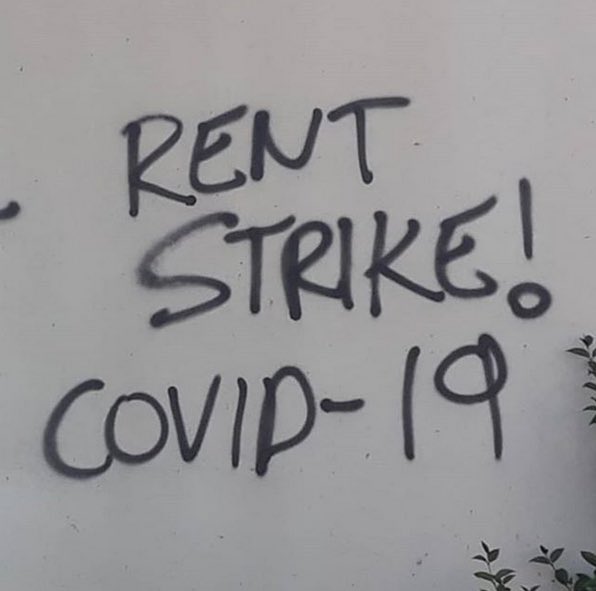 RENT
STRIKE!
COVID-19